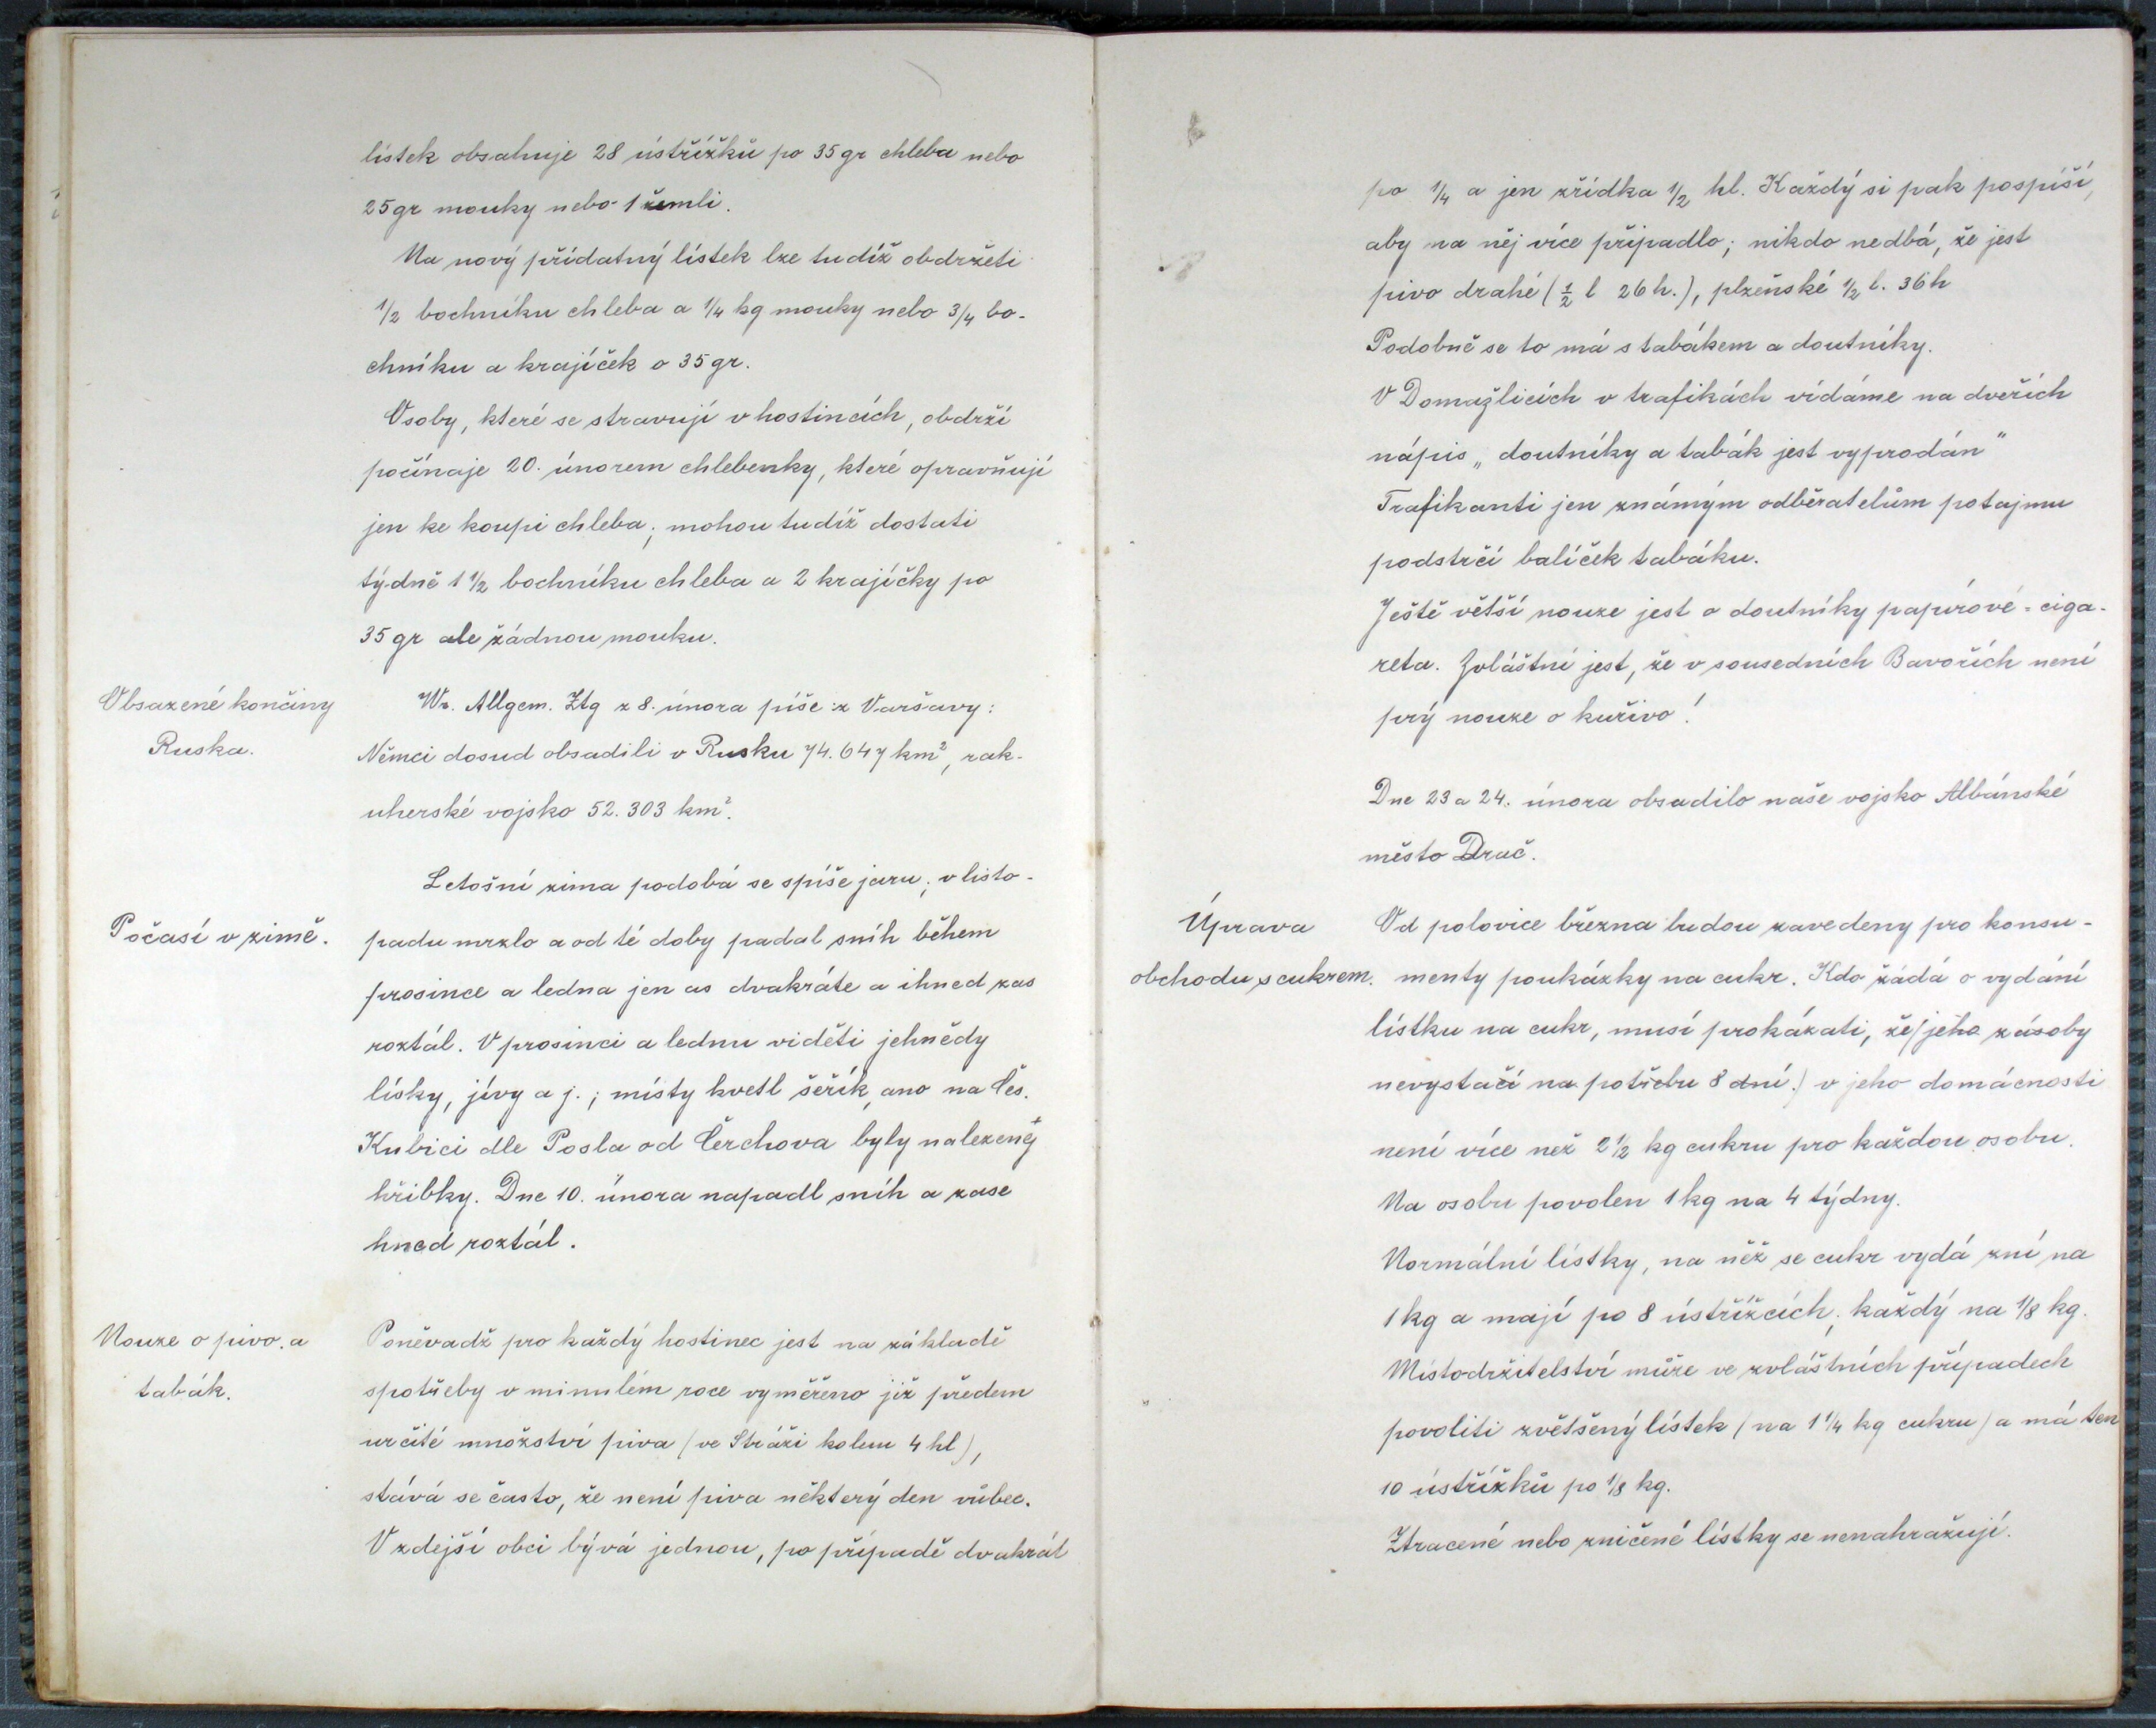 lístek obsahuje 28 ústřížků po 35 gr chleba nebo
25 gr mouky nebo 1 žemli.
Na nový přídatný lístek lze tudíž obdržeti
1/2 bochníku chleba a 1/4 kg mouky nebo 3/4 bo-
chníku a krajíček o 35 gr.
Osoby, které se stravují v hostincích, obdrží
počínaje 20. únorem chlebenky, které opravňují
jen ke koupi chleba; mohou tudíž dostati
týdně 1 1/2 bochníku chleba a 2 krajíčky po
35 gr ale žádnou mouku.
Obsazené končiny
Ruska.
Wr. Allgem. Ztg z 8. února píše z Varšavy:
Němci dosud obsadili v Rusku 74.647 km², rak-
uherské vojsko 52.303 km².
Počasí v zimě.
Letošní zima podobá se spíše jaru; v listo-
padu mrzlo a od té doby padal sníh během
prosince a ledna jen as dvakráte a ihned zas
roztál. V prosinci a lednu viděti jehnědy
lísky, jívy a j.; místy kvetl šeřík, ano na Čes.
Kubici dle Posla od Čerchova byly nalezeny
hříbky. Dne 10. února napadl sníh a zase
hned roztál.
Nouze o pivo a
tabák.
Poněvadž pro každý hostinec jest na základě
spotřeby v minulém roce vyměřeno již předem
určité množství piva (ve Stráži kolem 4 hl),
stává se často, že není piva některý den vůbec.
V zdejší obci bývá jednou, po případě dvakrát
po 1/4 a jen zřídka 1/2 hl. Každý si pak pospíší,
aby na něj více připadlo; nikdo nedbá, že jest
pivo drahé (1/2 l 26 h.), plzeňské 1/2 l. 36 h
Podobně se to má s tabákem a doutníky.
V Domažlicích v trafikách vídáme na dveřích
nápis „doutníky a tabák jest vyprodán"
Trafikanti jen známým odběratelům potajmu
podstrčí balíček tabáku.
Ještě větší nouze jest o doutníky papírové = ciga-
reta. Zvláštní jest, že v sousedních Bavořích není
prý nouze o kuřivo!
Dne 23 a 24. února obsadilo naše vojsko Albánské
město Drač.
Úprava
obchodu s cukrem.
Od polovice března budou zavedeny pro konsu-
menty poukázky na cukr. Kdo žádá o vydání
lístku na cukr, musí prokázati, že (jeho zásoby
nevystačí na potřebu 8 dní.) v jeho domácnosti
není více než 2 1/2 kg cukru pro každou osobu.
Na osobu povolen 1 kg na 4 týdny.
Normální lístky, na něž se cukr vydá zní na
1 kg a mají po 8 ústřížcích; každý na 1/8 kg.
Místodržitelství může ve zvláštních případech
povoliti zvětšený lístek (na 1 1/4 kg cukru) a má ten
10 ústřížků po 1/8 kg.
Ztracené nebo zničené lístky se nenahražují.